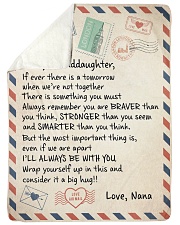 ddaughter,
If ever there is a tomorrow
when we're not together
There is something you must
Always remember you are BRAVER than
you think, STRONGER than you seem
and SMARTER than you think.
But the most important thing is,
even if we are apart
I'LL ALWAYS BE WITH YOU,
Wrap yourself up in this and
consider it a big hug!!
Love, Nana